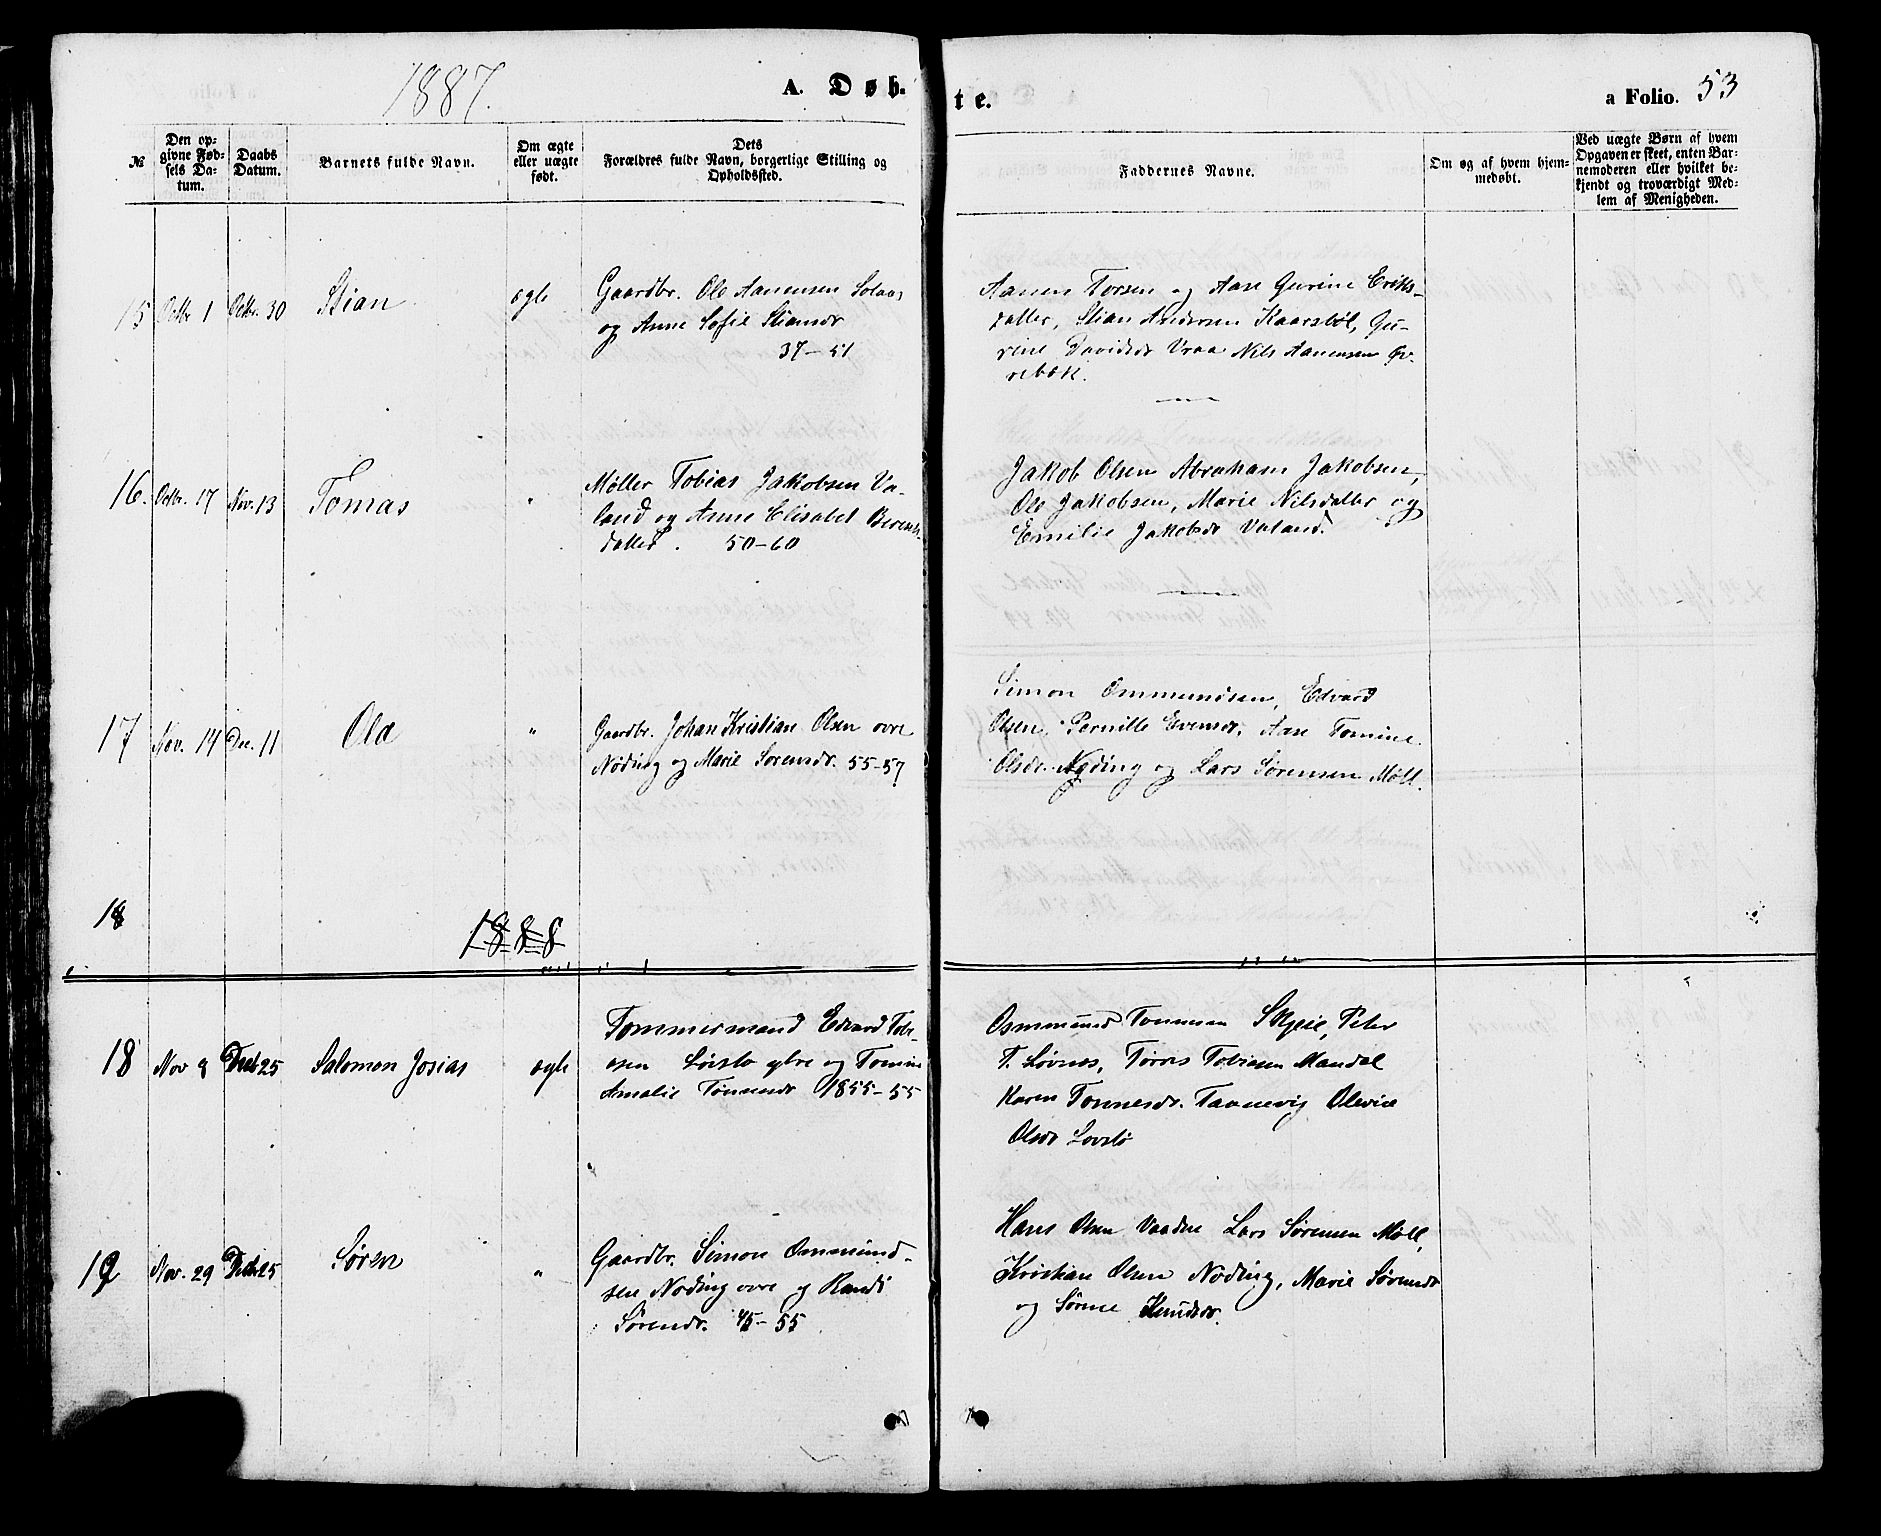 1887.
A. Døb-
te.
a Folio. 53
№
Den op-
givne Fød-
sels Da-
tum.
Daabs
Datum.
Barnets fulde Navn.
Om ægte
eller uægte
født.
Dets
Forældres fulde Navn, borgerlige Stilling og
Opholdssted.
Faddernes Navne.
Om og af hvem hjem-
medøbt.
Ved uægte Børn af hvem
Opgaven er skeet, enten Bar-
nemoderen eller hvilket be-
kjendt og troværdigt Med-
lem af Menigheden.
15 Octbr 1 Octbr. 30 Stian ægte
Gaardbr. Ole Aanensen Solaas
og Anne Sofie Stiansdr
37-51
Aanen Torsen og Aase Gurine Eriks-
datter, Stian Andersen Kaarstøl, Gu-
rine Davidsdr Vraa Nils Aanensen Øv-
rebøk.
16. Octbr. 17 Nov. 13 Tomas "
Møller Tobias Jakobsen Va-
land og Anne Elisabet Berents-
datter. 50-60
Jakob Olsen Abraham Jakobsen,
Ole Jakobsen, Marie Nilsdatter og
Emilie Jakobsdr Valand.
17 Nov. 14 Dec. 11 Ola "
Gaardbr. Johan Kristian Olsen øvre
Nøding og Marie Sørensdr. 55-57
Simon Ommundsen, Edvard
Olsen, Pernille Evensdr. Aase Tomine
Olsdr. Nøding og Lars Sørensen Møll.
18
1888
18 Nov 9 Decb 25 Salomon Josias ægte
Tømmermand Edvard Tobi-
asen Løvstø ytre og Tomine
Amalie Tønnesdr 1855-55
Osmmund Tønnesen Skjeie, Peter
T. Løvnes, Tørres Tobiasen Mandal
Karen Tønnesdr. Taanevig Olevine
Olsdr Løvstø
19 Nov. 29 Decb 25 Søren "
Gaardbr. Simon Ommund-
sen Nøding øvre og Randi
Sørensdr. 45-55
Hans Olsen Vaadne Lars Sørensen Møll,
Kristian Olsen Nøding, Marie Sørensdr
og Sørine Knudsdr.